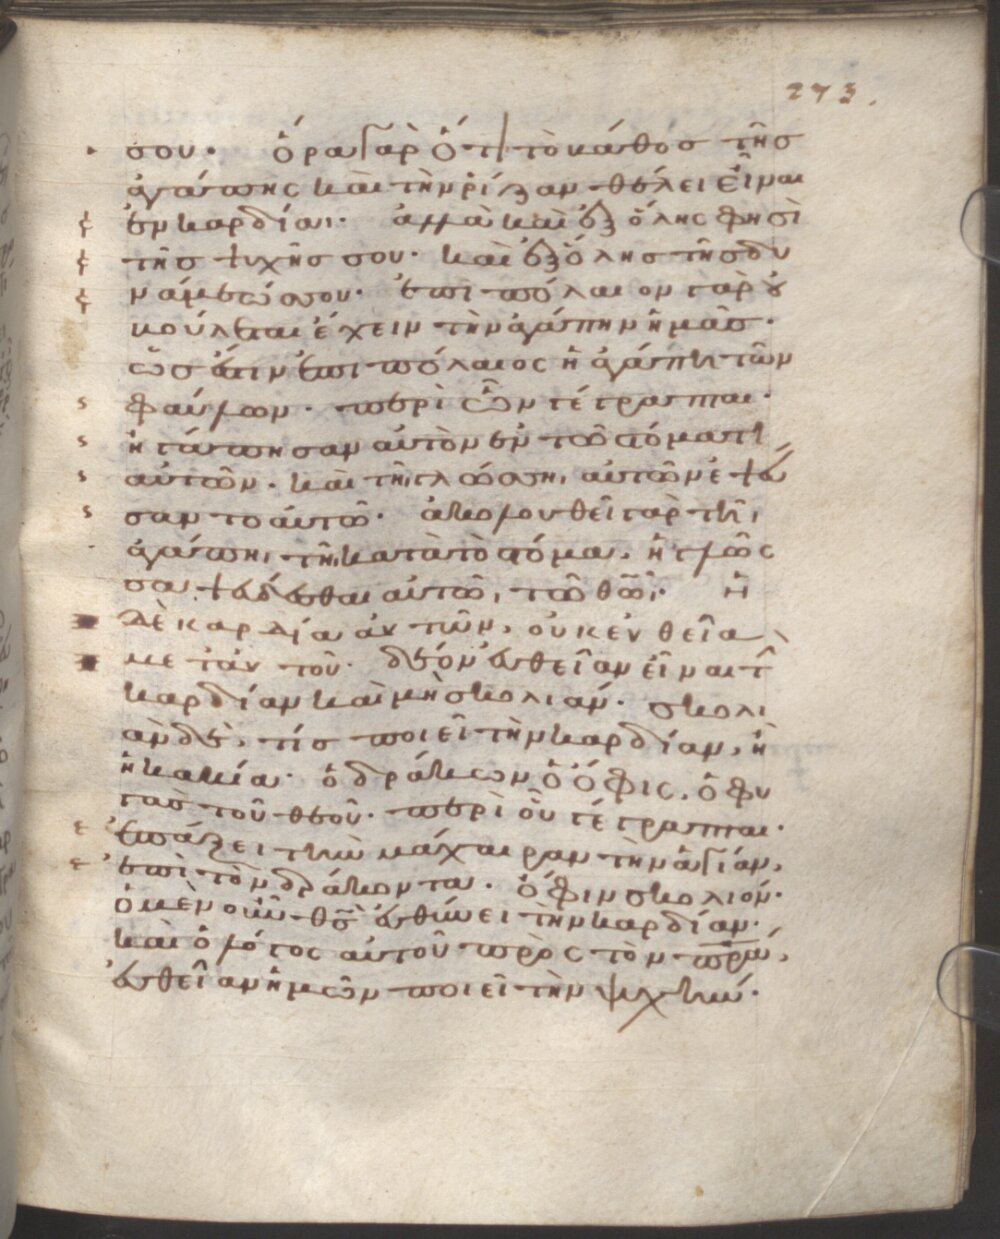 273.
σου· ὅρα γὰρ ὅτι τὸ βάθος τῆς
ἀγάπης καὶ τὴν ῥίζαν θέλει εἶναι
ἐν καρδίαι· ἀλλὰ καὶ ἐξ ὅλης φησὶ
τῆς ψυχῆς σου· καὶ ἐξ ὅλης τῆς δυ
νάμεώς σου· ἐπιπόλαιον γὰρ οὐ
βούλεται ἔχειν τὴν ἀγάπην ἡμᾶς·
ὥς ἐστιν ἐπιπόλαιος ἡ ἀγάπη τῶν
φαύλων· περὶ ὧν γέγραπται·
ἠγάπησαν αὐτὸν ἐν τῶ στόματι
αὐτῶν· καὶ τῆι γλώσσηι αὐτῶν ἐψεύ
σαντο αὐτῶ· ἀκολουθεῖ γὰρ τῆι
ἀγάπηι τῆι κατὰ τὸ στόμα, ἡ γλῶς
σα ψεύδεσθαι αὐτῶι τῶ θ̅ω̅ι· Ἡ
δὲ καρδία αὐτῶν, οὐκ εὐθεῖα
μετ αὐτοῦ· δέον εὐθεῖαν εἶναι τ
καρδίαν καὶ μὴ σκολιάν· σκολι
ὰν δὲ, τίς ποιεῖ τὴν καρδίαν, ἢ
ἡ κακία· ὁ δράκων ὁ ὄφις, ὁ φυ
γὰς τοῦ θεοῦ· περὶ οὗ γέγραπται·
ἐπάξει τὴν μάχαιραν τὴν ἁγίαν,
ἐπὶ τὸν δράκοντα· ὄφιν σκολιόν·
ὁ μὲν οὖν θ̅ς̅ εὐθύνει τὴν καρδίαν·
καὶ ὁ λόγος αὐτοῦ πρὸς τὸν π̅ρ̅α̅,
εὐθεῖαν ἡμῶν ποιεῖ τὴν ψυχήν·